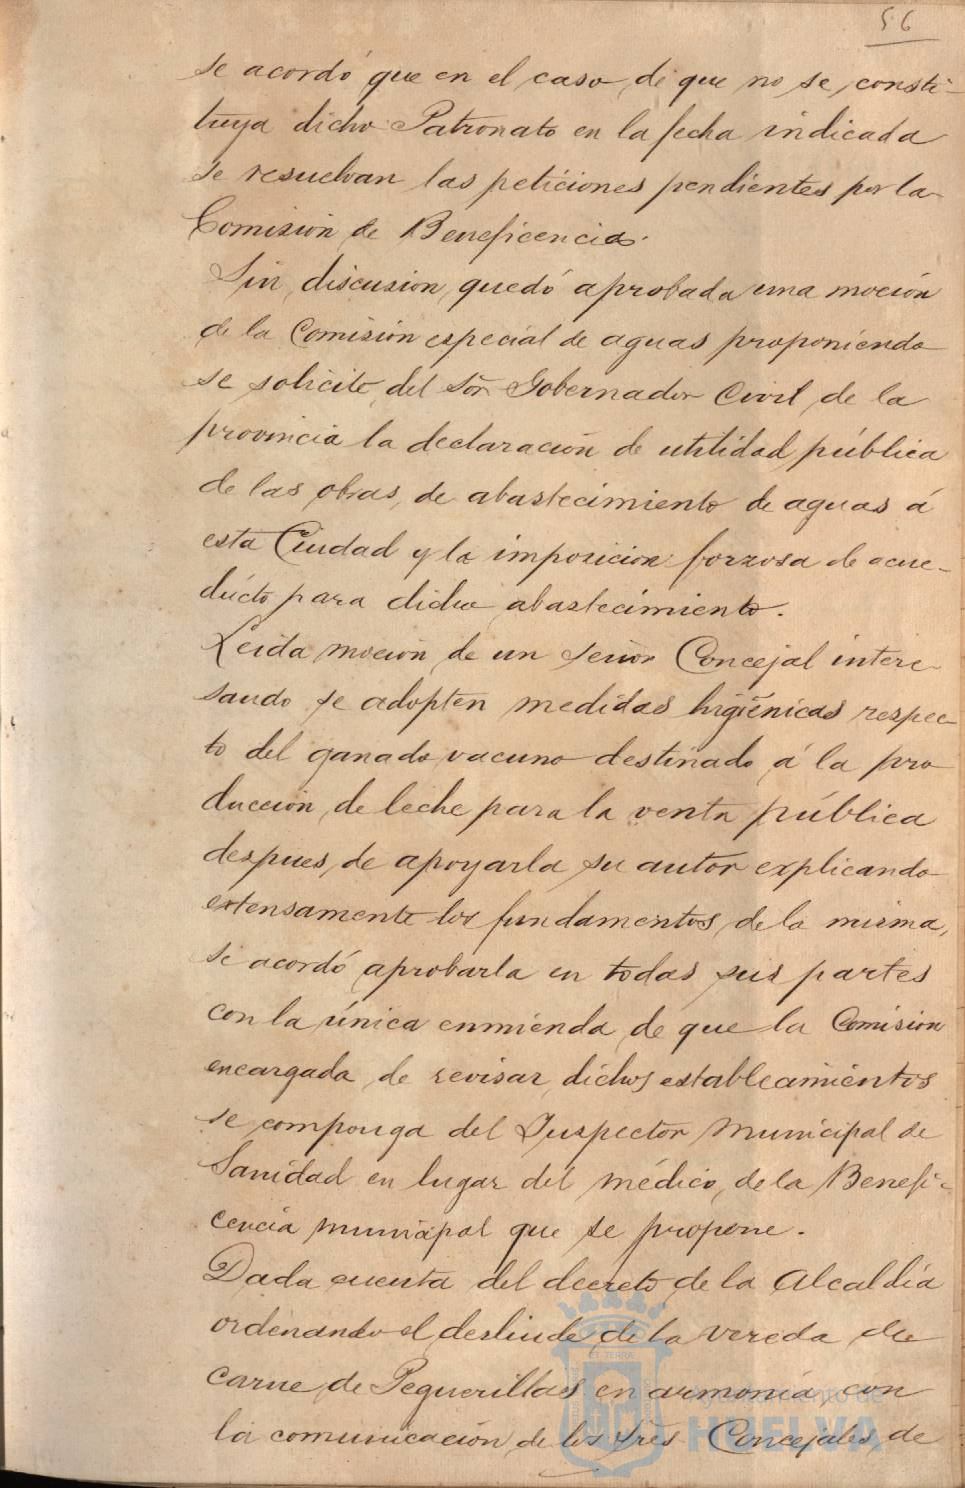 56
se acordó que en el caso de que no se consti-
tuya dicho Patronato en la fecha indicada
se resuelvan las peticiones pendientes por la
Comision de Beneficencia.
Sin discusion quedó aprobada una moción
de la Comision especial de aguas proponiendo
se solicite del Sor. Gobernador Civil de la
provincia la declaración de utilidad pública
de las obras de abastecimiento de aguas á
esta Ciudad y la imposicion forzosa de acue-
ducto para dicho abastecimiento.
Leida moción de un señor Concejal intere-
sando se adopten medidas higiénicas respec-
to del ganado vacuno destinado á la pro
duccion de leche para la venta pública
despues de apoyarla su autor explicando
extensamente los fundamentos de la misma,
se acordó aprobarla en todas sus partes
con la única enmienda de que la Comision
encargada de revisar dichos establecimientos
se componga del Inspector Municipal de
Sanidad en lugar del médico de la Benefi-
cencia municipal que se propone.
Dada cuenta del decreto de la Alcaldía
ordenando el deslinde de la vereda de
carne de Peguerillas en armonia con
la comunicación de los Sres Concejales de
Ayuntamiento de
HUELVA